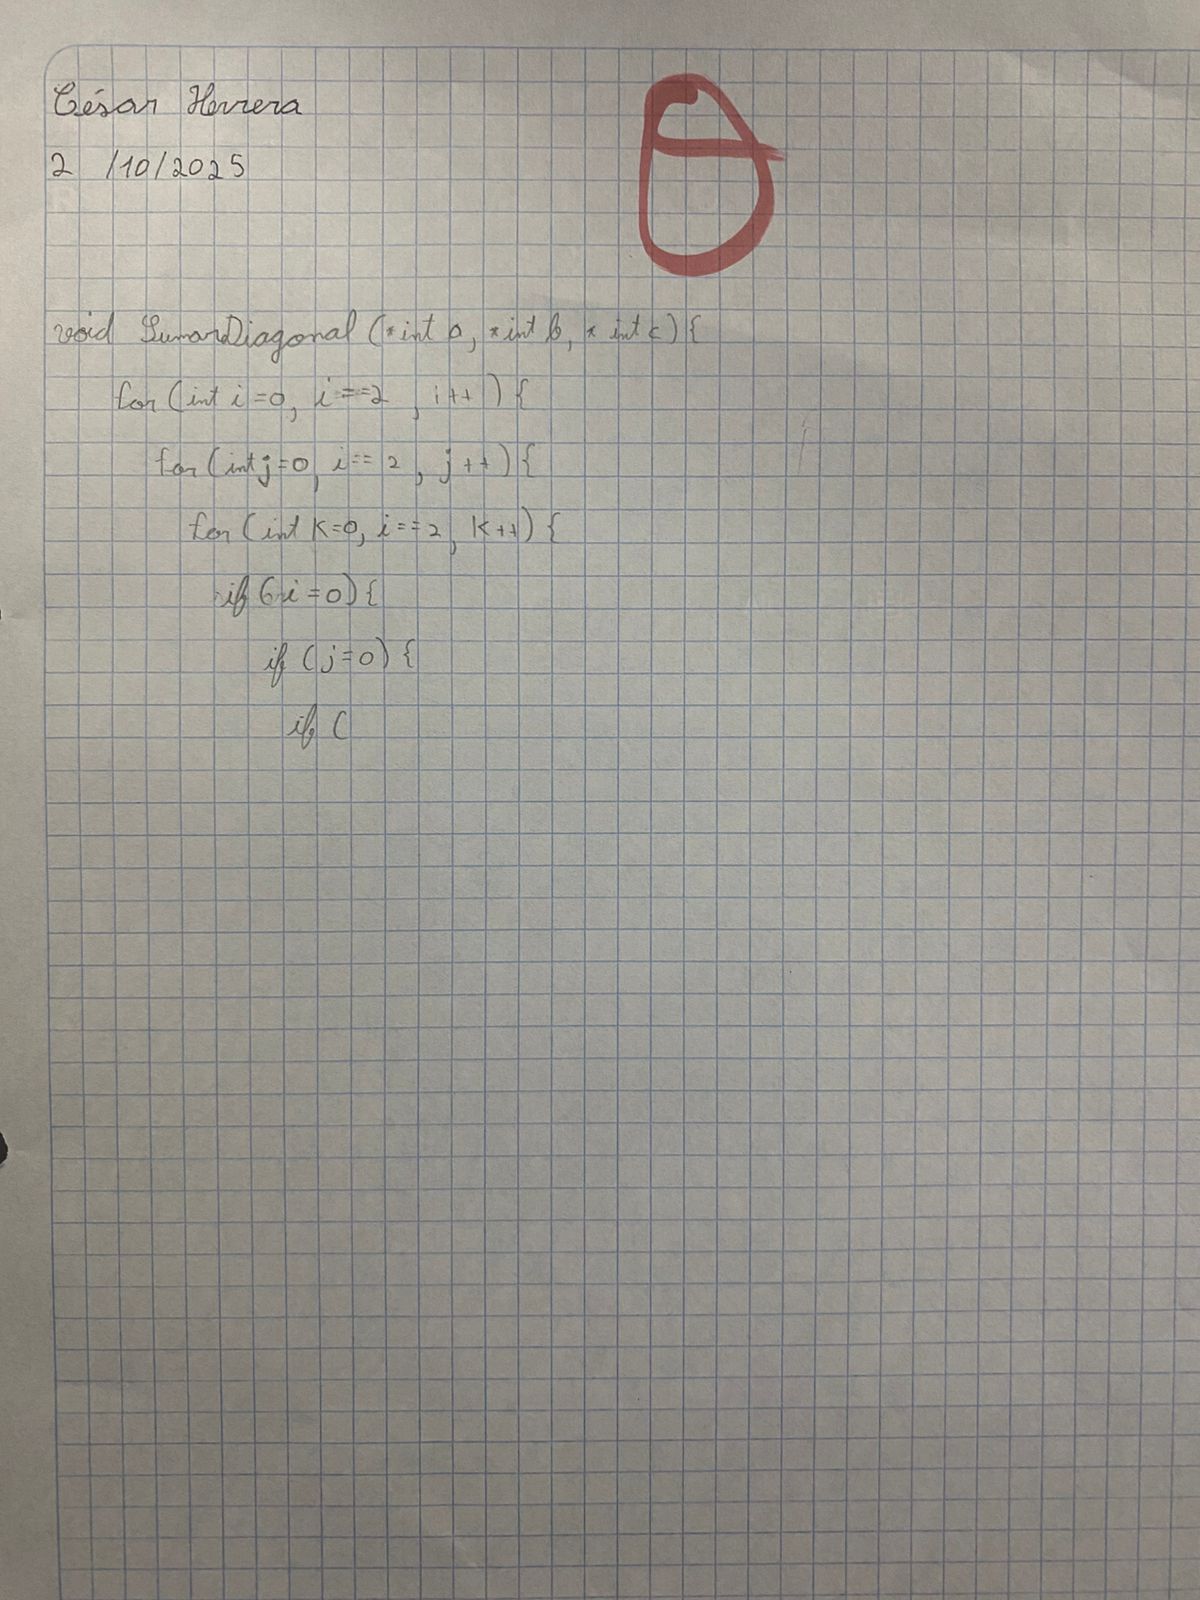 César Herrera
2 /10/2025
void SumarDiagonal (*int a, *int b, * int c){
for (int i=0, i==2 , i++) {
for (int j=0, i== 2 , j++) {
for (int k=0, i==2, k++) {
if (i=0) {
if (j=0) {
if (